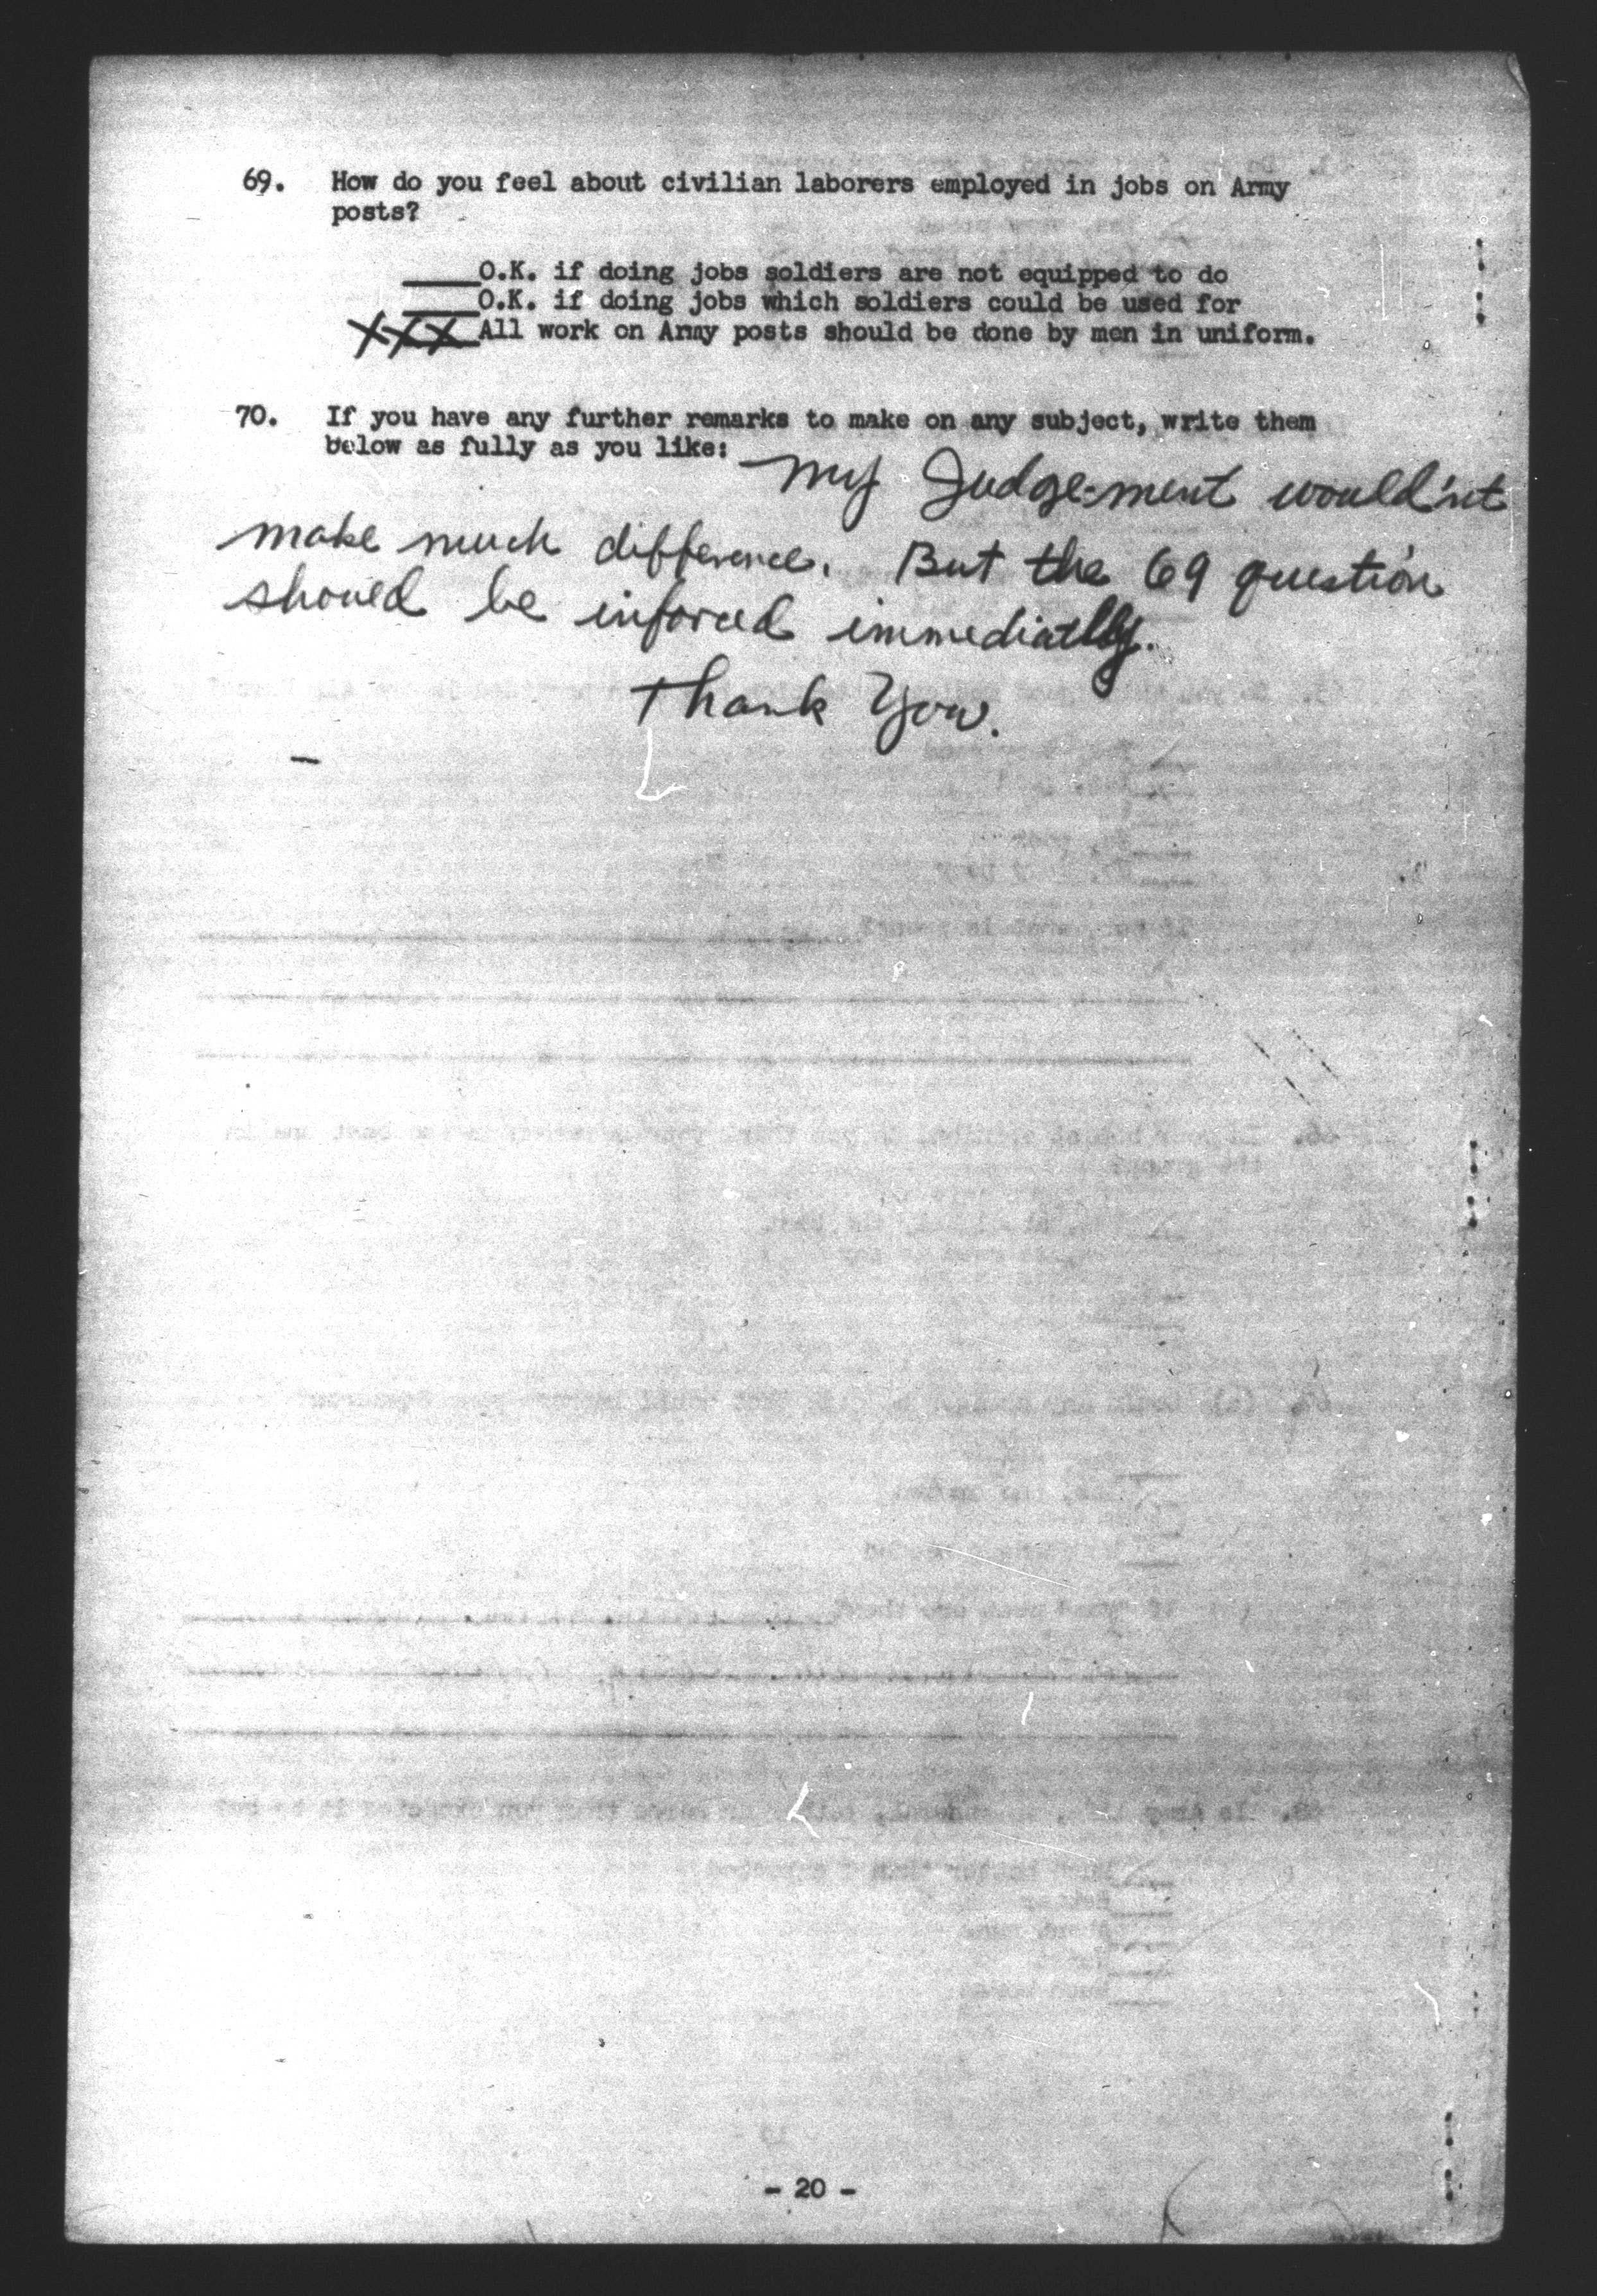 69. How do you feel about civilian laborers employed in jobs on Army
posts?
____O.K. if doing jobs soldiers are not equipped to do
____O.K. if doing jobs which soldiers could be used for
XXX All work on Army posts should be done by men in uniform.
70. If you have any further remarks to make on any subject, write them
below as fully as you like:
My Judge-ment would'nt
make much difference. But the 69 question
should be inforced immediatlly.
Thank You.
- 20 -